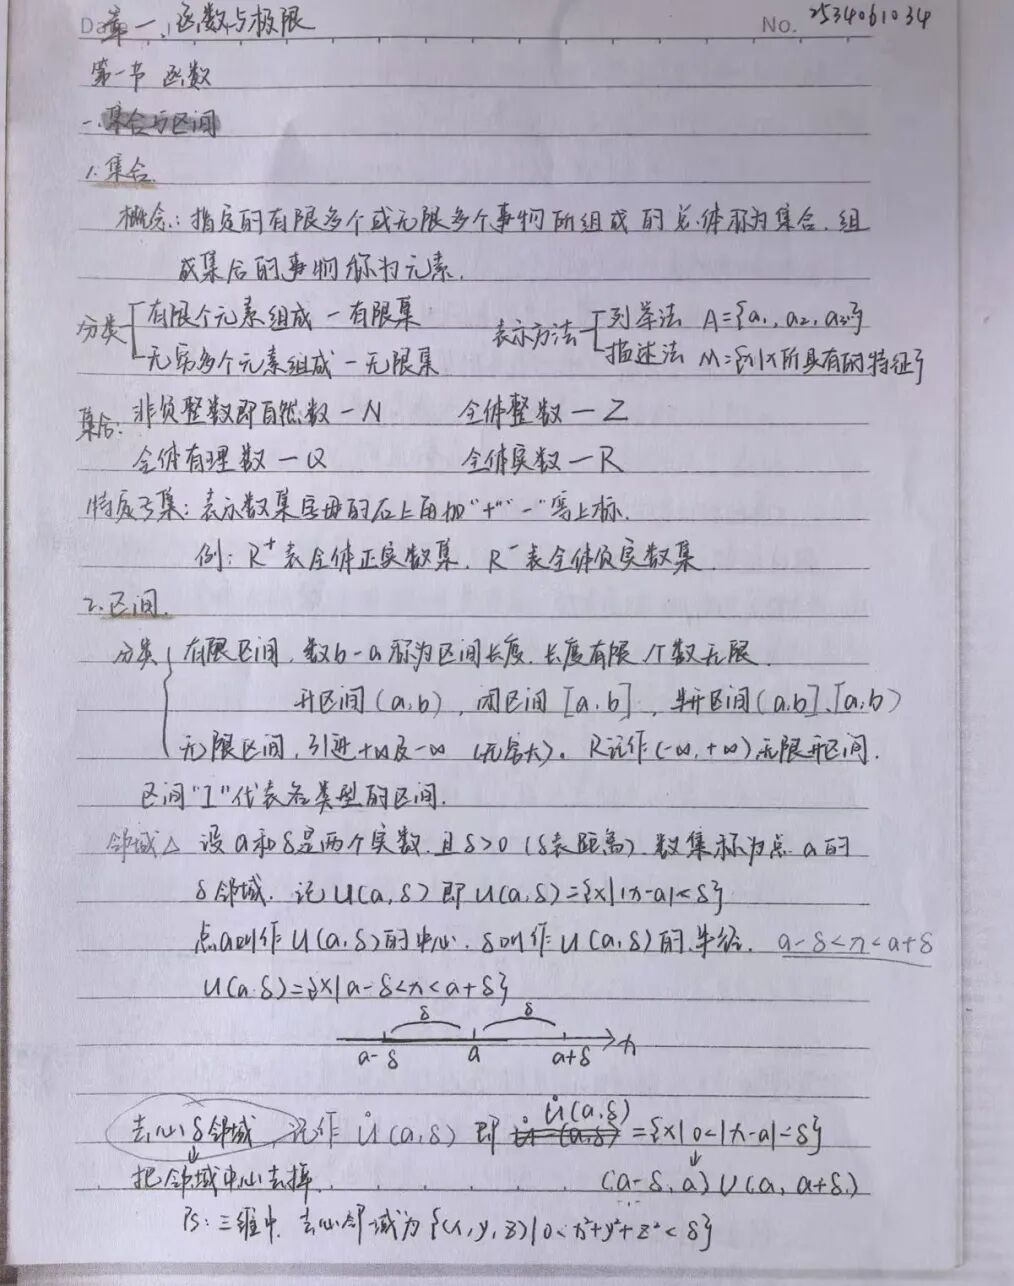 Date 章一、函数与极限 No. 2534061034
第一节 函数
一.集合与区间
1.集合.
概念:指定的有限多个或无限多个事物所组成的总体称为集合.组
成集合的事物称为元素.
分类 有限个元素组成-有限集 表示方法 列举法 A={a₁,a₂,a₃}
无穷多个元素组成-无限集 描述法 M={x|x所具有的特征}
集合:非负整数即自然数-N 全体整数-Z
全体有理数-Q 全体实数-R
特质子集:表示数集字母的右上角加"+""-"写上标.
例:R⁺表全体正实数集.R⁻表全体负实数集
2.区间.
分类{有限区间.数b-a称为区间长度.长度有限个数无限.
开区间(a,b),闭区间[a,b],半开区间(a,b]、[a,b)
无限区间,引进+∞及-∞(无穷大)。R记作(-∞,+∞)无限开区间.
区间"I"代表各类型的区间.
邻域△ 设a和δ是两个实数.且δ>0(δ表距离).数集称为点a的
δ邻域.记U(a,δ)即U(a,δ)={x||x-a|<δ}
点a叫作U(a,δ)的中心.δ叫作U(a,δ)的半径. a-δ<x<a+δ
U(a.δ)={x|a-δ<x<a+δ}
δ δ
a-δ a a+δ x
Ů(a,δ)
去心δ邻域,记作Ů(a,δ) 即 ={x|0<|x-a|<δ}
↓ ↓
把邻域中心去掉. (a-δ,a)∪(a,a+δ)
Ps:三维中,去心邻域为{(x,y,z)|0<x²+y²+z²<δ}